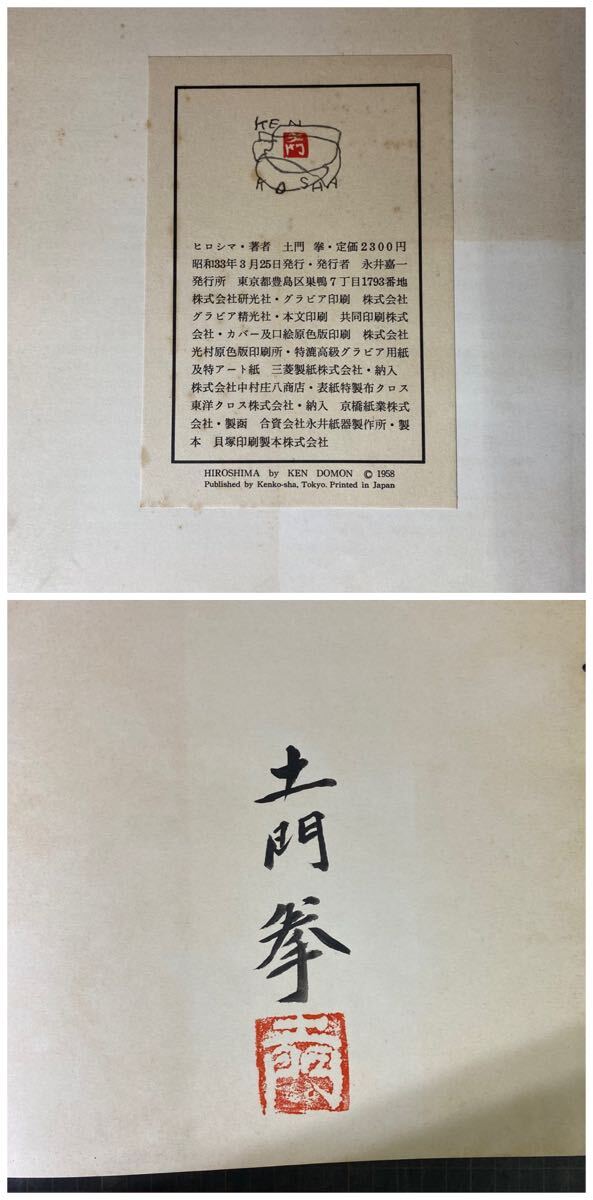 KEN
土門
KOSHA
ヒロシマ・著者　土門　拳・定価2300円
昭和33年3月25日発行・発行者　永井嘉一
発行所　東京都豊島区巣鴨7丁目1793番地
株式会社研光社・グラビア印刷　株式会社
グラビア精光社・本文印刷　共同印刷株式
会社・カバー及口絵原色版印刷　株式会社
光村原色版印刷所・特漉高級グラビア用紙
及特アート紙　三菱製紙株式会社・納入
株式会社中村庄八商店・表紙特製布クロス
東洋クロス株式会社・納入　京橋紙業株式
会社・製函　合資会社永井紙器製作所・製
本　貝塚印刷製本株式会社
HIROSHIMA by KEN DOMON © 1958
Published by Kenko-sha, Tokyo. Printed in Japan
土門拳
土門